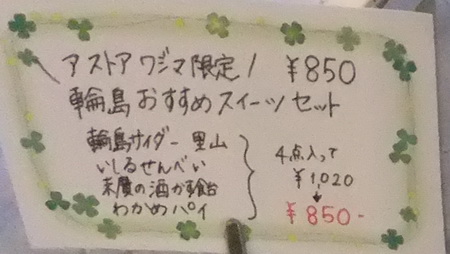 \アストアワジマ限定/ ¥850
輪島おすすめスイーツセット
輪島サイダー 里山
いしるせんべい
末廣の酒かす飴
わかめパイ
4点入って
¥1,020
↓
¥850-